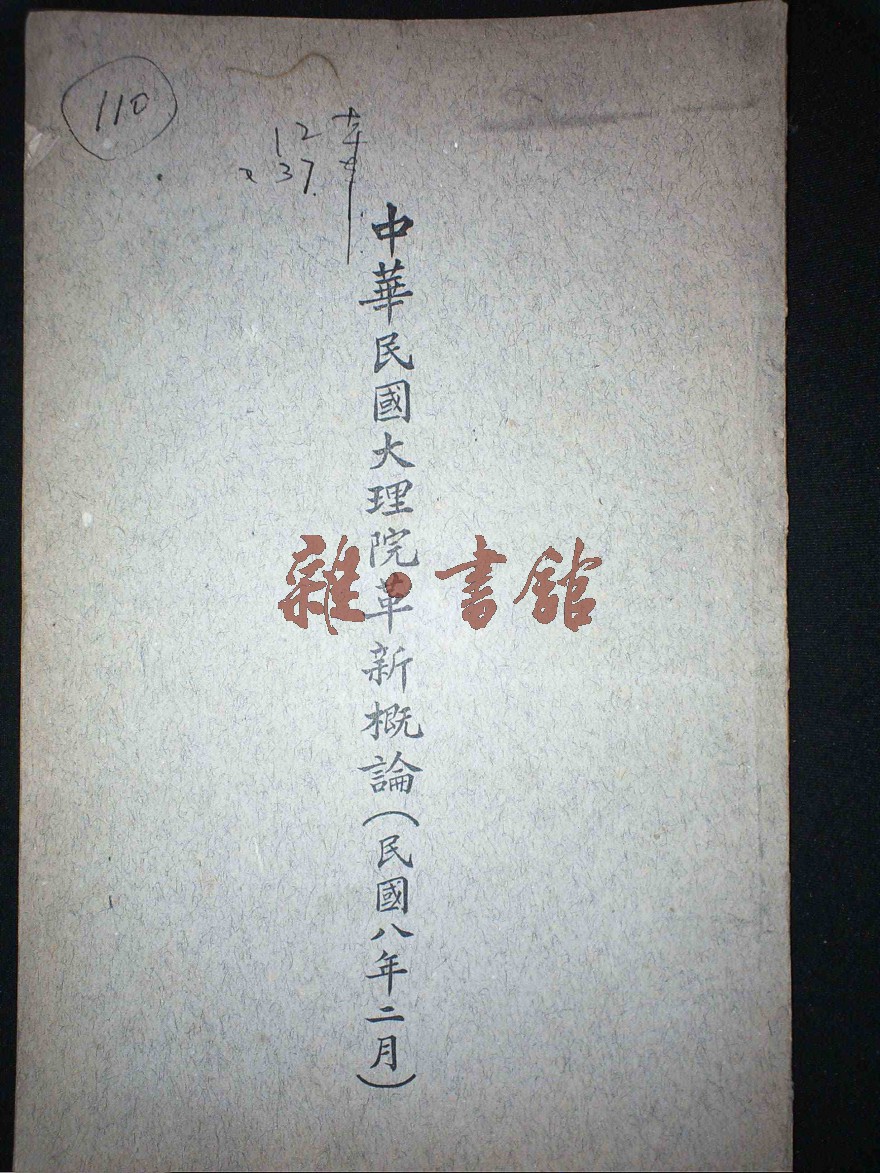 110
12
37
中華民國大理院革新概論(民國八年二月)
雜·書館